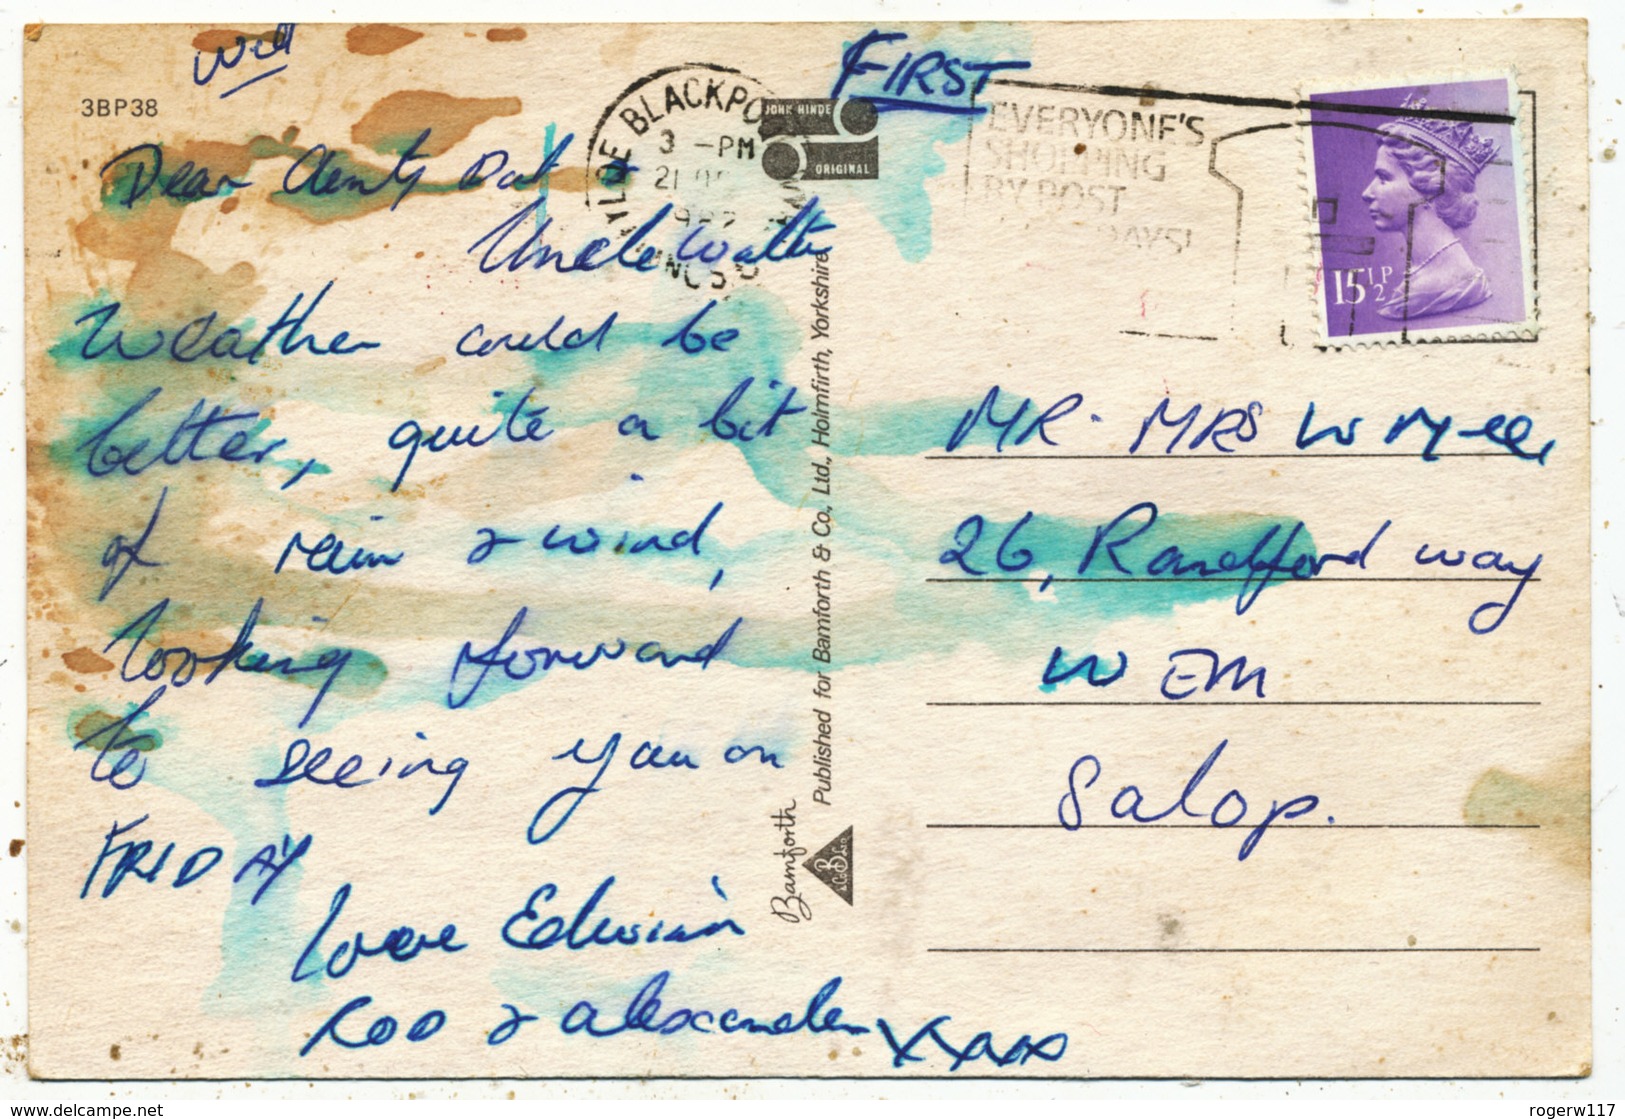 Wed
3BP38
Dear Aunty Dot &
Uncle Walter
Weather could be
better, quite a bit
of rain & wind,
looking forward
to seeing you on
FRIDAY
love Edwin
Roo & Alexander xxxx
FYLDE BLACKPO
3 -PM
21
JOHN HINDE
ORIGINAL
Published for Bamforth & Co., Ltd., Holmfirth, Yorkshire
Bamforth
FIRST
EVERYONE'S
SHOPPING
BY POST
DAYS!
15½P
MR. MRS W
26, Randford way
WEM
Salop.
www.delcampe.net
rogerw117